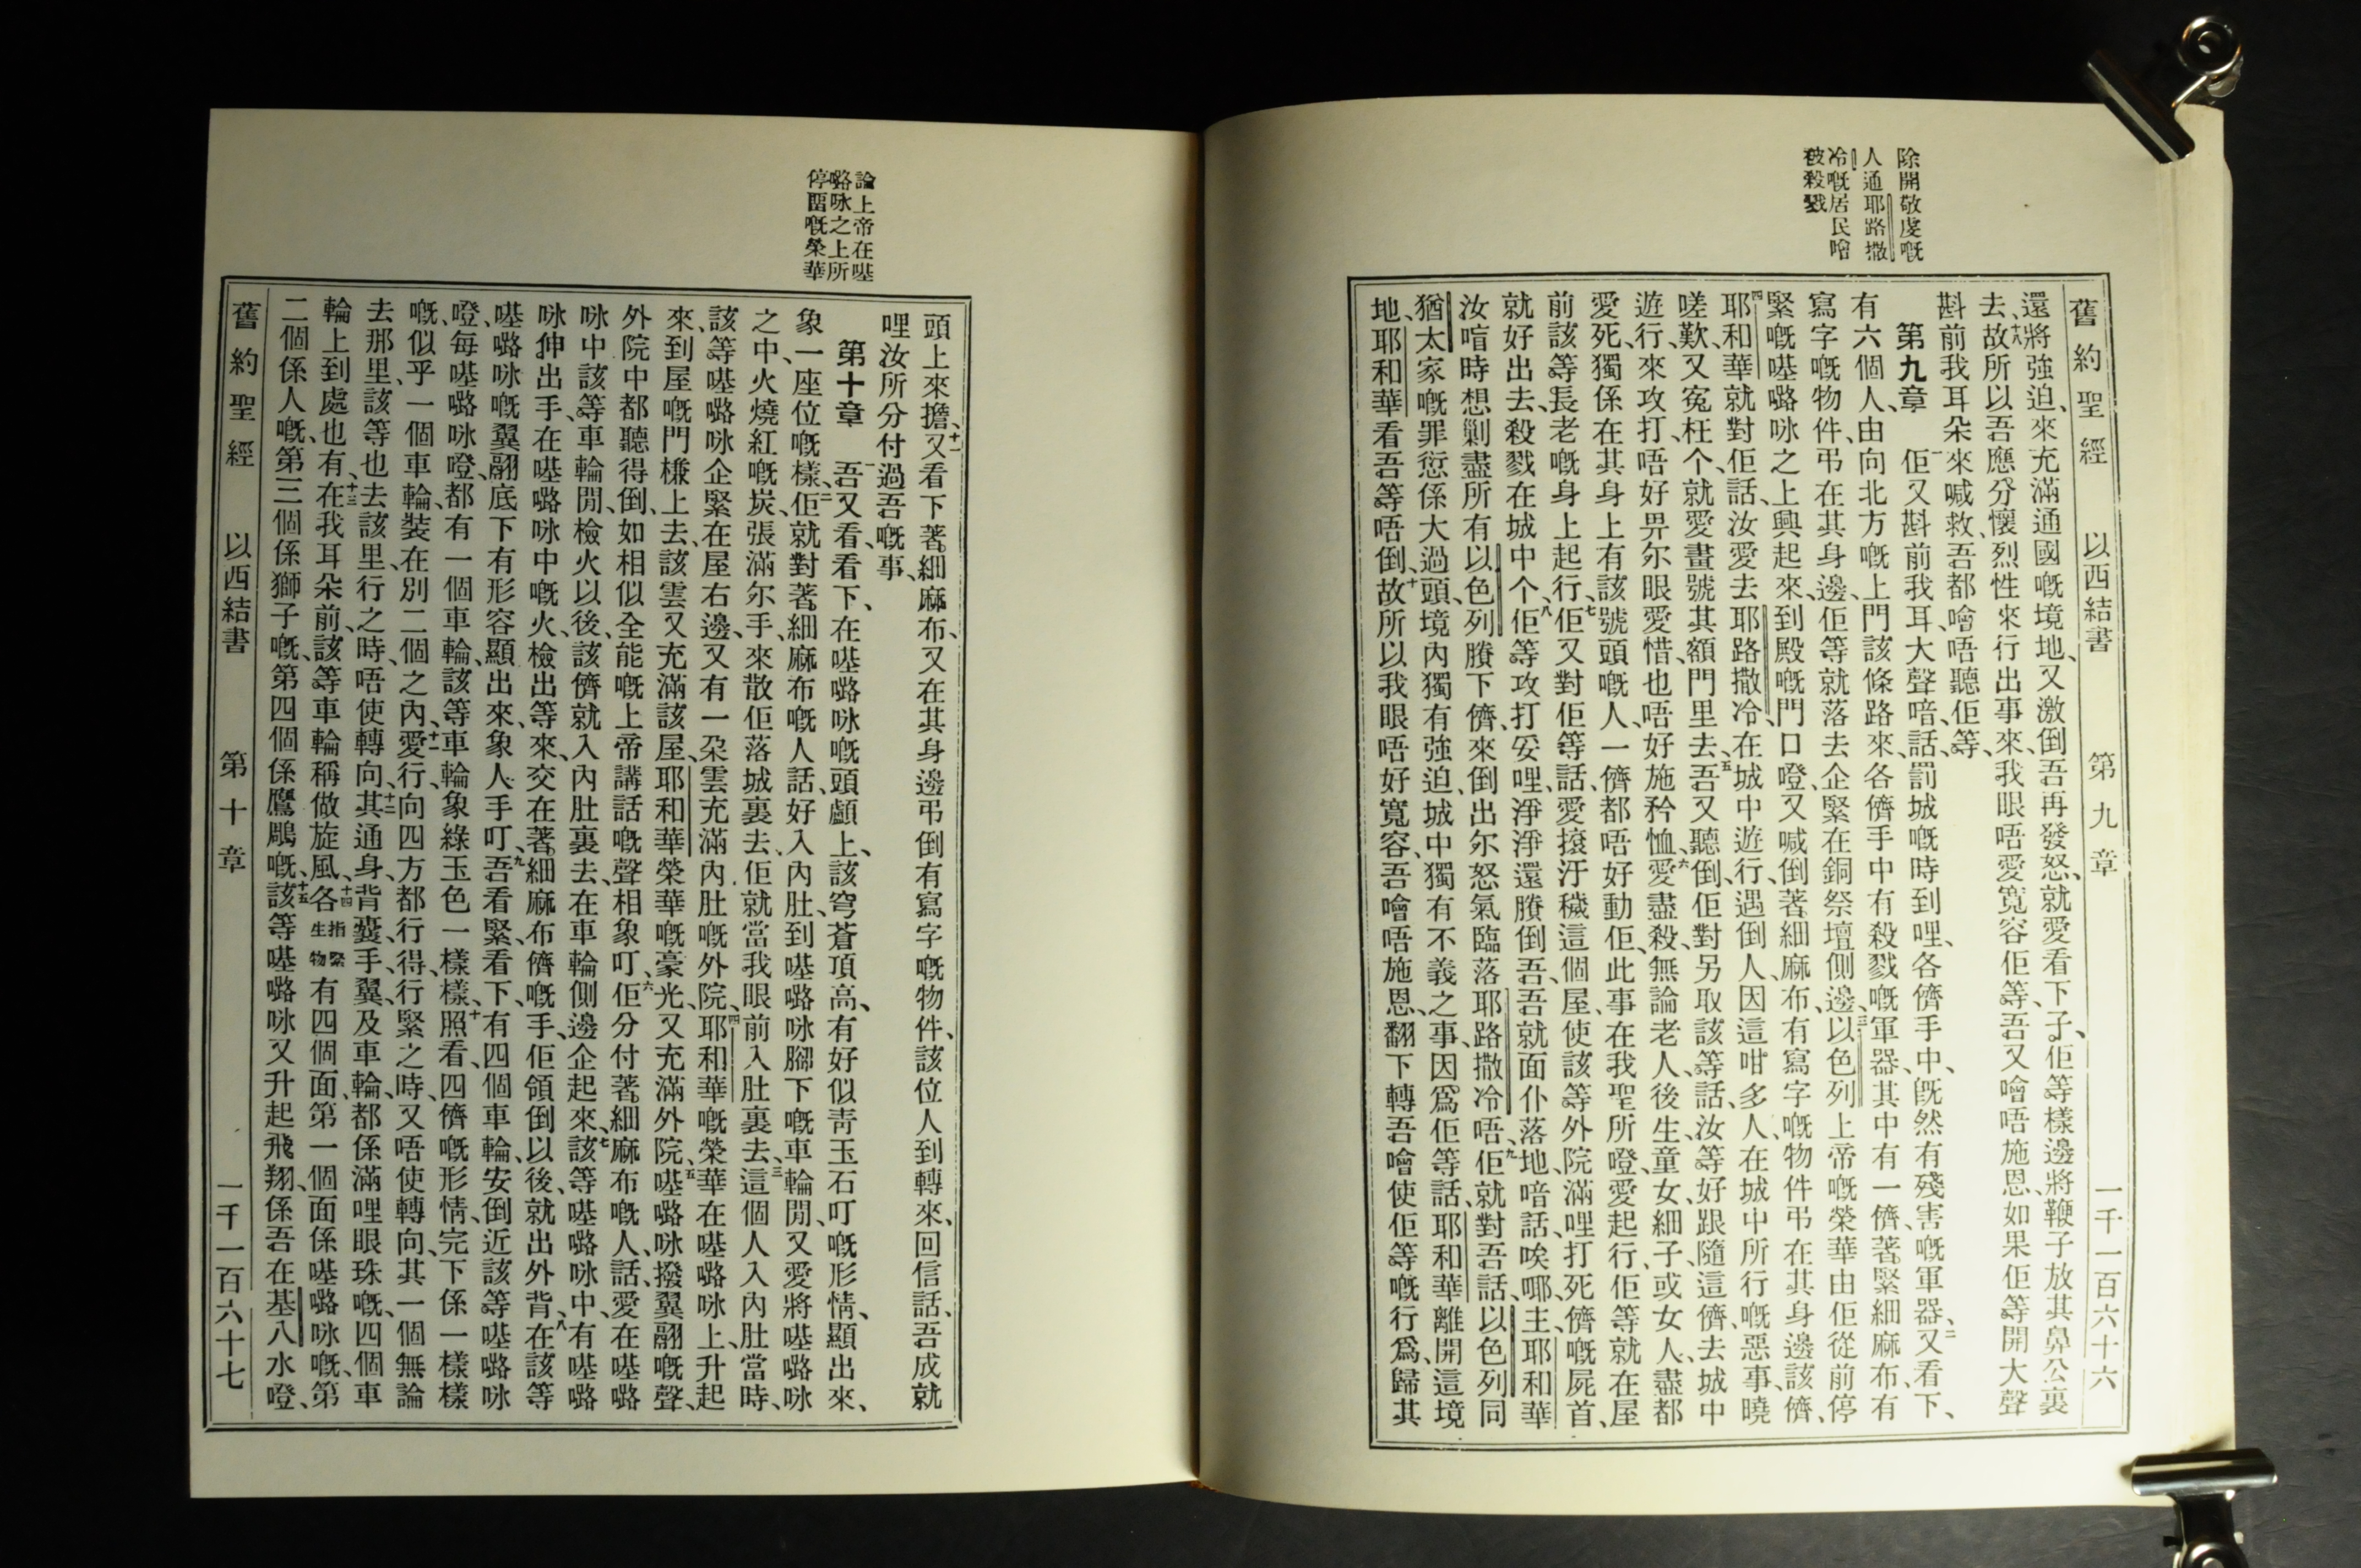 除開敬虔嘅
人通耶路撒
冷嘅居民噲
被殺戮
舊約聖經 以西結書 第九章 一千一百六十六
還將強迫、來充滿通國嘅境地、又激倒吾再發怒、就愛看下子、佢等樣邊將鞭子放其鼻公裏
去、十八故所以吾應分懷烈性來行出事來、我眼唔愛寬容佢等、吾又噲唔施恩、如果佢等開大聲
斟前我耳朵來喊救、吾都噲唔聽佢等、
第九章 一佢又斟前我耳、大聲喑話、罰城嘅時到哩、各儕手中、旣然有殘害嘅軍器、二又看下、
有六個人、由向北方嘅上門該條路來、各儕手中有殺戮嘅軍器、其中有一儕著緊細麻布、有
寫字嘅物件、弔在其身邊、佢等就落去企緊在銅祭壇側邊、三以色列上帝嘅榮華、由佢從前停
緊嘅𠹌嚕咏之上興起來、到殿嘅門口嶝、又喊倒著細麻布、有寫字嘅物件弔在其身邊該儕、
四耶和華就對佢話、汝愛去耶路撒冷、在城中遊行、遇倒人、因這咁多人、在城中所行嘅惡事、曉
嗟歎、又冤枉个、就愛畫號其額門里去、五吾又聽倒、佢對另取該等話、汝等好跟隨這儕、去城中
遊行、來攻打、唔好畀尔眼愛惜、也唔好施矜恤、六愛盡殺、無論老人、後生、童女、細子、或女人、盡都
愛死、獨係在其身上有該號頭嘅人、一儕都唔好動佢、此事在我聖所嶝、愛起行、佢等就在屋
前該等長老嘅身上起行、七佢又對佢等話、愛㨶汙穢這個屋、使該等外院滿哩打死儕嘅屍首、
就好出去、殺戮在城中个、八佢等攻打妥哩、淨淨還賸倒吾、吾就面仆落地喑話、唉㖿、主、耶和華
汝喑時想剿盡所有以色列賸下儕、來倒出尔怒氣臨落耶路撒冷唔、九佢就對吾話、以色列同
猶太家嘅罪愆係大過頭、境內獨有強迫、城中獨有不義之事、因爲佢等話、耶和華離開這境
地、耶和華看吾等唔倒、十故所以我眼唔好寬容、吾噲唔施恩、翻下轉吾噲使佢等嘅行爲、歸其
論上帝在𠹌
嚕咏之上所
停畱嘅榮華
頭上來擔、十一又看下著細麻布、又在其身邊弔倒有寫字嘅物件、該位人到轉來、回信話、吾成就
哩汝所分付過吾嘅事、
第十章 一吾又看看下、在𠹌嚕咏嘅頭顱上、該穹蒼頂高、有好似靑玉石叮嘅形情、顯出來、
象一座位嘅樣、二佢就對著細麻布嘅人話、好入內肚、到𠹌嚕咏腳下嘅車輪閒、又愛將𠹌嚕咏
之中、火燒紅嘅炭、張滿尔手、來散佢落城裏去、佢就當我眼前入肚裏去、三這個人入內肚當時、
該等𠹌嚕咏企緊在屋右邊、又有一朶雲充滿內肚嘅外院、四耶和華嘅榮華在𠹌嚕咏上、升起
來、到屋嘅門槺上去、該雲又充滿該屋、耶和華榮華嘅豪光、又充滿外院、五𠹌嚕咏撥翼翮嘅聲、
外院中都聽得倒、如相似全能嘅上帝講話嘅聲相象叮、六佢分付著細麻布嘅人話、愛在𠹌嚕
咏中該等車輪閒、檢火以後、該儕就入內肚裏去、在車輪側邊企起來、七該等𠹌嚕咏中、有𠹌嚕
咏伸出手、在𠹌嚕咏中嘅火、檢出等來、交在著細麻布儕嘅手、佢領倒以後、就出外背、八在該等
𠹌嚕咏嘅翼翮底下有形容顯出來、象人手叮、九吾看緊、看下、有四個車輪、安倒近該等𠹌嚕咏
嶝、每𠹌嚕咏嶝、都有一個車輪、該等車輪象綠玉色一樣樣、十照看四儕嘅形情、完下係一樣樣
嘅、似乎一個車輪、裝在別二個之內、十一愛行、向四方都行得、行緊之時、又唔使轉向、其一個無論
去那里、該等也去該里、行之時、唔使轉向、十二其通身、背囊、手、翼及車輪、都係滿哩眼珠嘅、四個車
輪上到處也有、十三在我耳朵前、該等車輪稱做旋風、十四各指緊生物有四個面、第一個面係𠹌嚕咏嘅、第
二個係人嘅、第三個係獅子嘅、第四個係鷹鵰嘅、十五該等𠹌嚕咏又升起飛翔、係吾在基八水嶝、
舊約聖經 以西結書 第十章 一千一百六十七